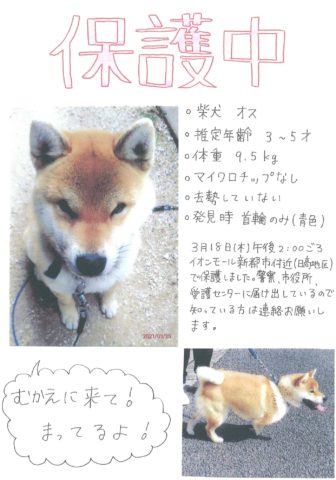 保護中
○柴犬 オス
○推定年齢 3～5才
○体重 9.5kg
○マイクロチップなし
○去勢していない
○発見時 首輪のみ(青色)
3月18日(木)午後2:00ごろ
イオンモール新都市付近(日高地区)
で保護しました。警察、市役所、
愛護センターに届け出しているので
知っている方は連絡お願いし
ます。
2021/03/18
むかえに来て!
まってるよ!